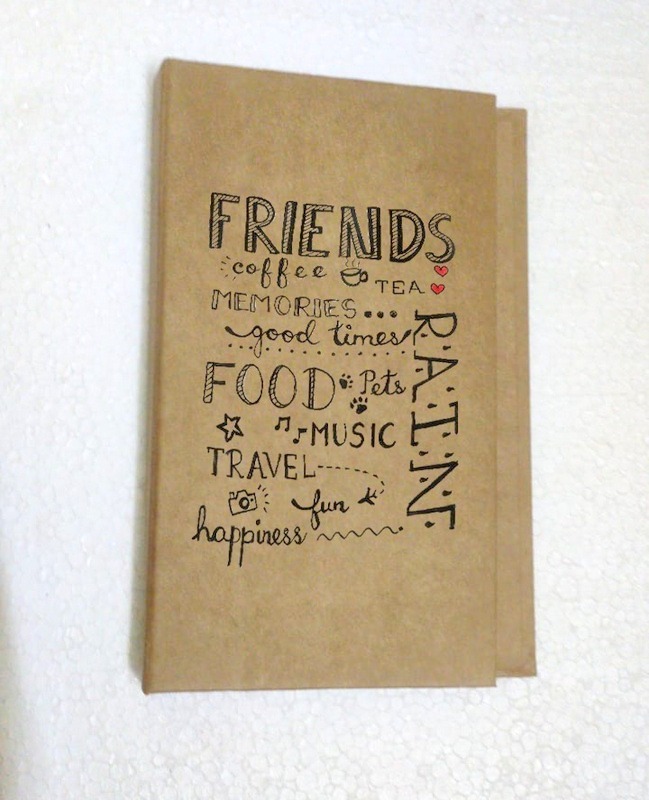 FRIENDS
coffee
TEA
MEMORIES...
good times
RAIN
FOOD
Pets
MUSIC
TRAVEL
fun
happiness